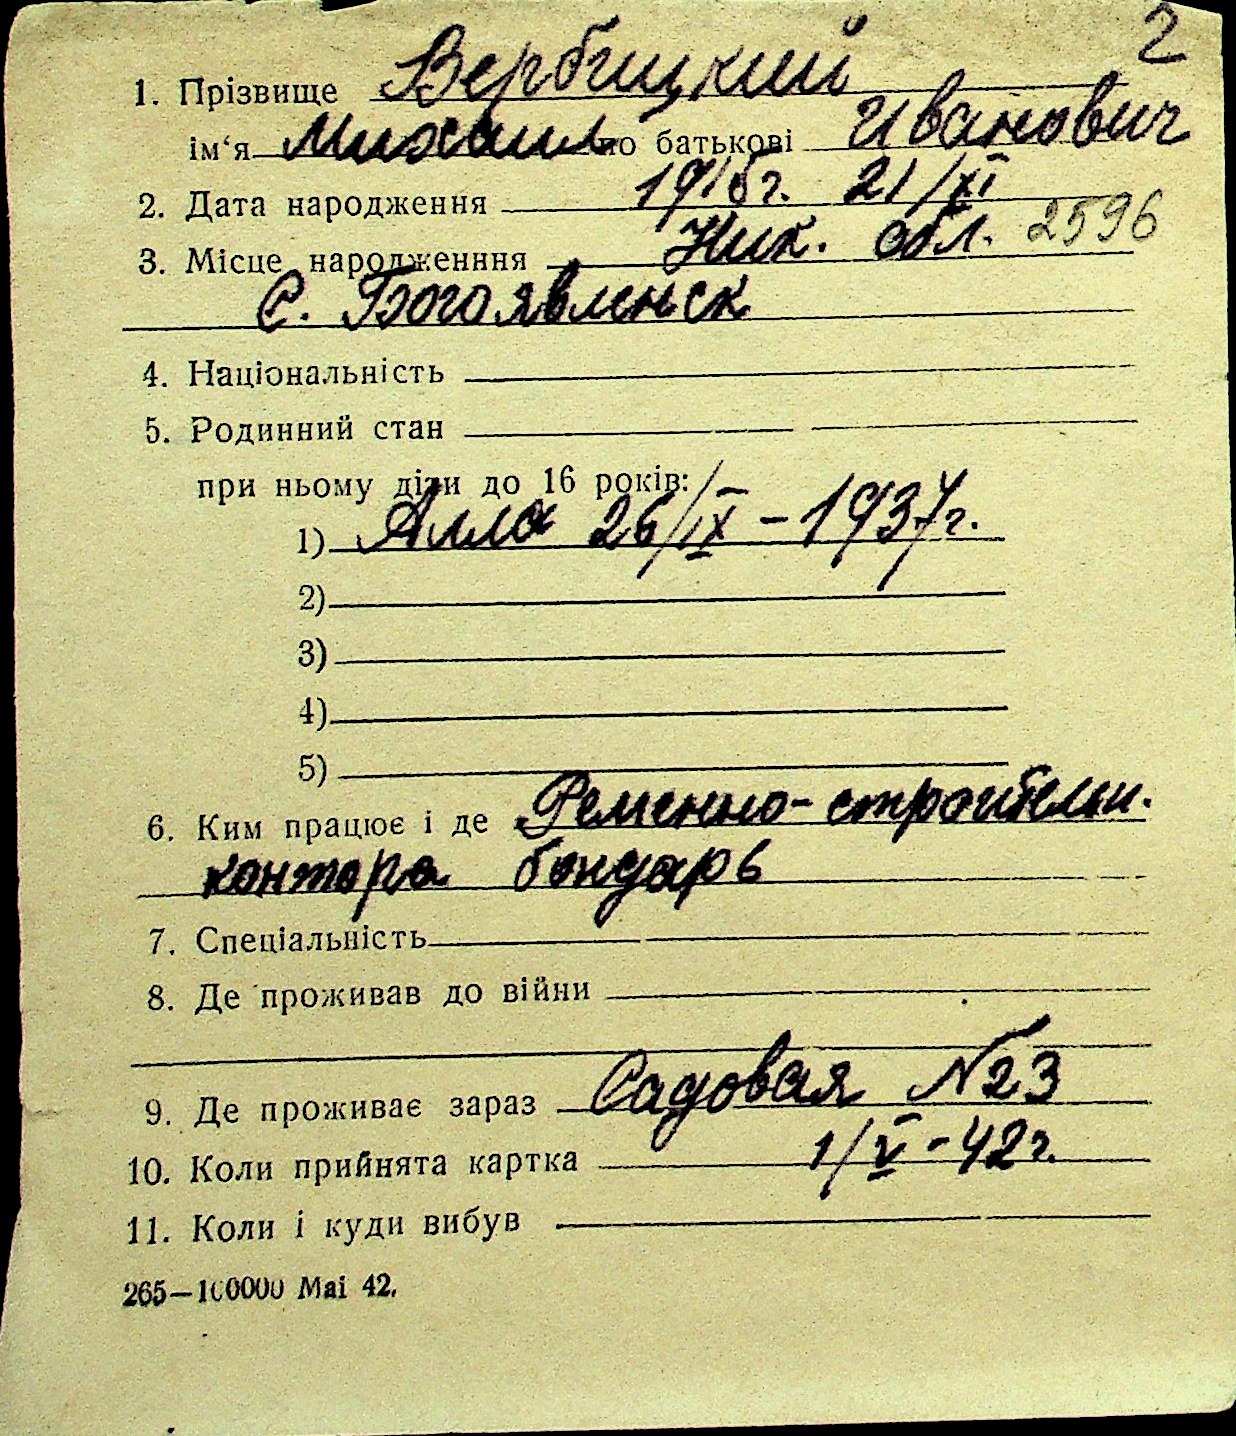 2
1. Прізвище Вербицкий
ім‘я Михаил по батькові Иванович
2. Дата народження 1915г. 21/XI
3. Місце народженння Ник. обл. 2596
С. Богоявленск
4. Національність
5. Родинний стан
при ньому діти до 16 років:
1) Алла 26/IX - 1937г.
2)
3)
4)
5)
6. Ким працює і де Ременно-строительн.
контора бондарь
7. Спеціальність
8. Де проживав до війни
9. Де проживає зараз Садовая №23
10. Коли прийнята картка 1/V - 42г.
11. Коли і куди вибув
265—100000 Mai 42.